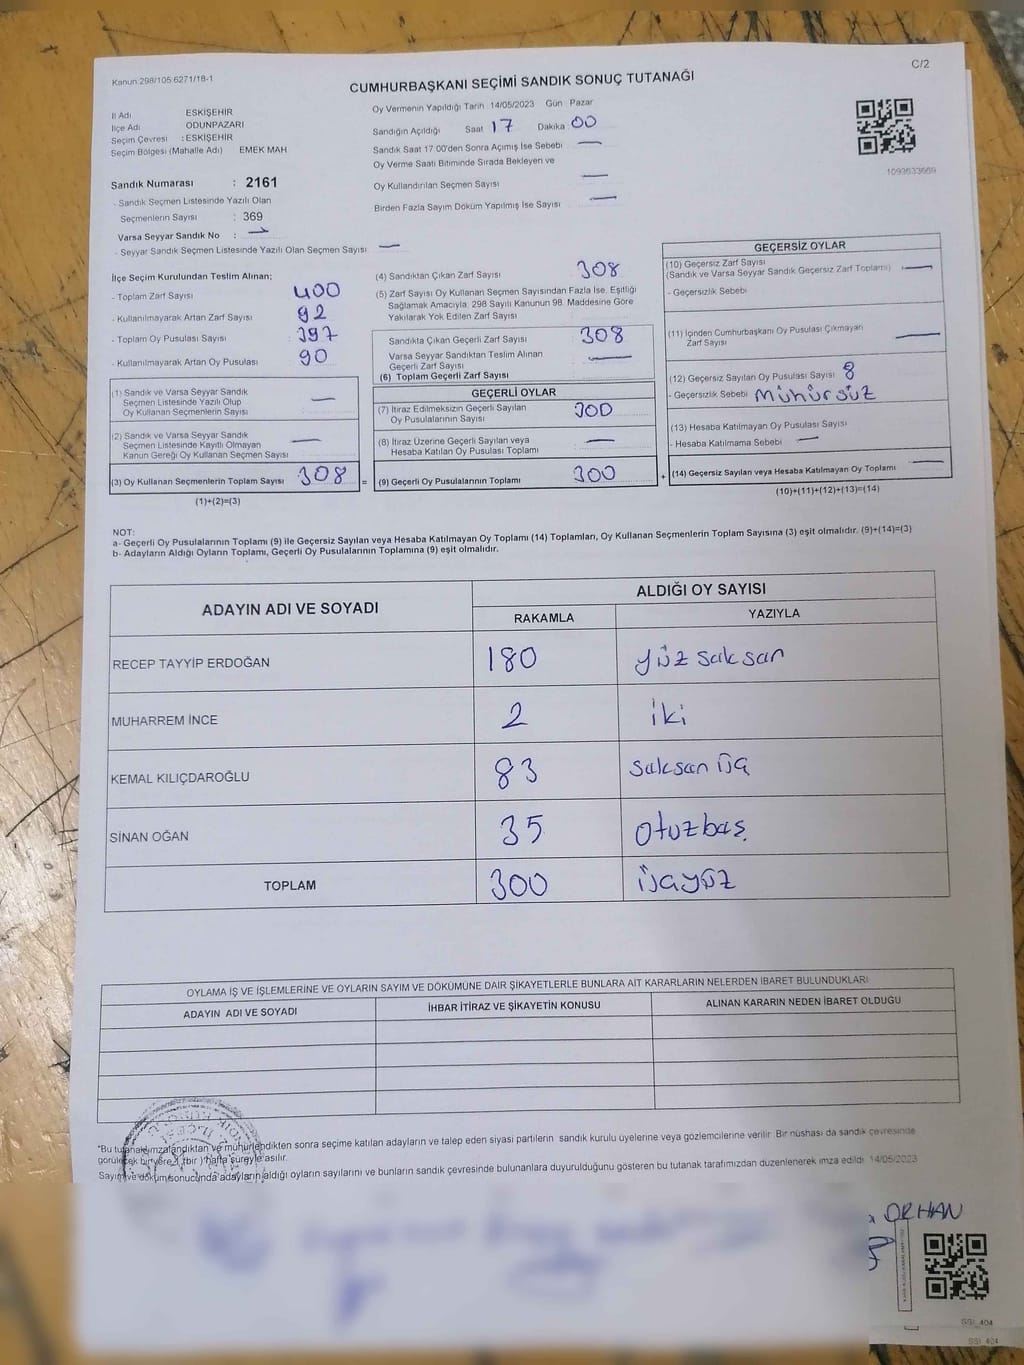 Kanun:298/105 6271/18-1
C/2
CUMHURBAŞKANI SEÇİMİ SANDIK SONUÇ TUTANAĞI
İl Adı ESKİŞEHİR
İlçe Adı ODUNPAZARI
Seçim Çevresi : ESKİŞEHİR
Seçim Bölgesi (Mahalle Adı) EMEK MAH
Sandık Numarası : 2161
- Sandık Seçmen Listesinde Yazılı Olan
Seçmenlerin Sayısı : 369
Varsa Seyyar Sandık No : —
- Seyyar Sandık Seçmen Listesinde Yazılı Olan Seçmen Sayısı —
Oy Vermenin Yapıldığı Tarih 14/05/2023 Gün Pazar
Sandığın Açıldığı Saat 17 Dakika 00
Sandık Saat 17:00'den Sonra Açımış İse Sebebi —
Oy Verme Saati Bitiminde Sırada Bekleyen ve
Oy Kullandırılan Seçmen Sayısı —
Birden Fazla Sayım Döküm Yapılmış İse Sayısı —
1093633669
İlçe Seçim Kurulundan Teslim Alınan;
- Toplam Zarf Sayısı 400
- Kullanılmayarak Artan Zarf Sayısı 92
- Toplam Oy Pusulası Sayısı : 397
- Kullanılmayarak Artan Oy Pusulası 90
(1) Sandık ve Varsa Seyyar Sandık
Seçmen Listesinde Yazılı Olup
Oy Kullanan Seçmenlerin Sayısı —
(2) Sandık ve Varsa Seyyar Sandık
Seçmen Listesinde Kayıtlı Olmayan
Kanun Gereği Oy Kullanan Seçmen Sayısı —
(3) Oy Kullanan Seçmenlerin Toplam Sayısı 308 =
(1)+(2)=(3)
(4) Sandıktan Çıkan Zarf Sayısı 308
(5) Zarf Sayısı Oy Kullanan Seçmen Sayısından Fazla İse, Eşitliği
Sağlamak Amacıyla, 298 Sayılı Kanunun 98. Maddesine Göre
Yakılarak Yok Edilen Zarf Sayısı
Sandıkta Çıkan Geçerli Zarf Sayısı 308
Varsa Seyyar Sandıktan Teslim Alınan
Geçerli Zarf Sayısı —
(6) Toplam Geçerli Zarf Sayısı
GEÇERLİ OYLAR
(7) İtiraz Edilmeksizin Geçerli Sayılan
Oy Pusulalarının Sayısı 300
(8) İtiraz Üzerine Geçerli Sayılan veya
Hesaba Katılan Oy Pusulası Toplamı —
(9) Geçerli Oy Pusulalarının Toplamı 300 +
GEÇERSİZ OYLAR
(10) Geçersiz Zarf Sayısı
(Sandık ve Varsa Seyyar Sandık Geçersiz Zarf Toplamı) —
- Geçersizlik Sebebi
(11) İçinden Cumhurbaşkanı Oy Pusulası Çıkmayan
Zarf Sayısı —
(12) Geçersiz Sayılan Oy Pusulası Sayısı 8
- Geçersizlik Sebebi mühürsüz
(13) Hesaba Katılmayan Oy Pusulası Sayısı
- Hesaba Katılmama Sebebi —
(14) Geçersiz Sayılan veya Hesaba Katılmayan Oy Toplamı —
(10)+(11)+(12)+(13)=(14)
NOT:
a- Geçerli Oy Pusulalarının Toplamı (9) ile Geçersiz Sayılan veya Hesaba Katılmayan Oy Toplamı (14) Toplamları, Oy Kullanan Seçmenlerin Toplam Sayısına (3) eşit olmalıdır. (9)+(14)=(3)
b- Adayların Aldığı Oyların Toplamı, Geçerli Oy Pusulalarının Toplamına (9) eşit olmalıdır.
ADAYIN ADI VE SOYADI
ALDIĞI OY SAYISI
RAKAMLA YAZIYLA
RECEP TAYYİP ERDOĞAN 180 yüz saksan
MUHARREM İNCE 2 iki
KEMAL KILIÇDAROĞLU 83 saksan üç
SİNAN OĞAN 35 otuzbaş
TOPLAM 300 üçyüz
OYLAMA İŞ VE İŞLEMLERİNE VE OYLARIN SAYIM VE DÖKÜMÜNE DAİR ŞİKAYETLERLE BUNLARA AİT KARARLARIN NELERDEN İBARET BULUNDUKLARI
ADAYIN ADI VE SOYADI İHBAR İTİRAZ VE ŞİKAYETİN KONUSU ALINAN KARARIN NEDEN İBARET OLDUĞU
"Bu tutanak imzalandıktan ve mühürlendikten sonra seçime katılan adayların ve talep eden siyasi partilerin sandık kurulu üyelerine veya gözlemcilerine verilir. Bir nüshası da sandık çevresinde
görülecek bir yere 1 (bir ) hafta süreyle asılır.
Sayım ve döküm sonucunda adayların aldığı oyların sayılarını ve bunların sandık çevresinde bulunanlara duyurulduğunu gösteren bu tutanak tarafımızdan düzenlenerek imza edildi. 14/05/2023
ORHAN
SSI_404
SSI_404